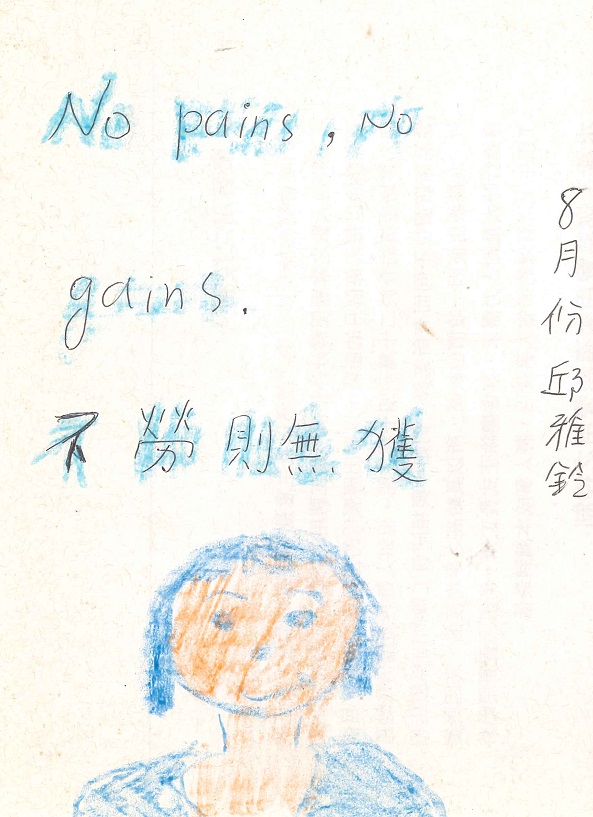 No pains, No
gains.
不勞則無獲
8月份邱雅鈴